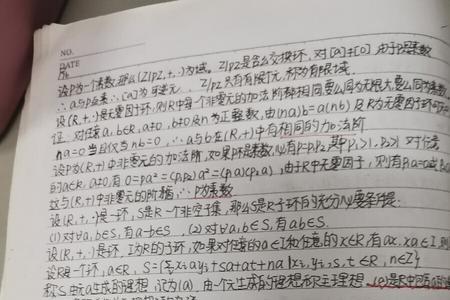 NO.
DATE
设P为一个素数,那么(Z/PZ,+,·)为域。Z/PZ是含幺交换环,对[a]≠[0],由于P是素数
∴a与P互素∴[a]为可逆元. Z/PZ只有有限个元,称为有限域.
设(R,+,·)是无零因子环,则R中每个非零元的加法阶都相同,要么同为无限大,要么同为素数
证 对任意a,b∈R,a≠0,b≠0及n为正整数,由(na)b=a(nb)及R为无零因子环可知
na=0当且仅当nb=0,∴a与b在(R,+)中有相同的加法阶
设P为(R,+)中非零元的加法阶,如果P非素数,必有P=P₁P₂,其中P₁>1,P₂>1 对任意
的a∈R,a≠0,有0=pa²=(P₁P₂)a²=(P₁a)(P₂a),由于R中无零因子,则有P₁a=0或
与(R,+)中非零元的阶 ∴P为素数
设(R,+,·)是环,S是R一个非空子集,那么S是R子环的充分必要条件是.
(1)对∀a,b∈S,有a-b∈S. (2)对∀a,b∈S,有ab∈S.
设(R,+,·)是环,I为R的子环,如果对任意的a∈I和任意的x∈R,有ax,xa∈I
设R是一个环,a∈R,S={∑xᵢayᵢ+sa+at+na|xᵢ,yᵢ,s,t∈R,n∈Z}
称S由a生成的理想,记为(a),由一个元生成的理想称主理想.(a)是R中